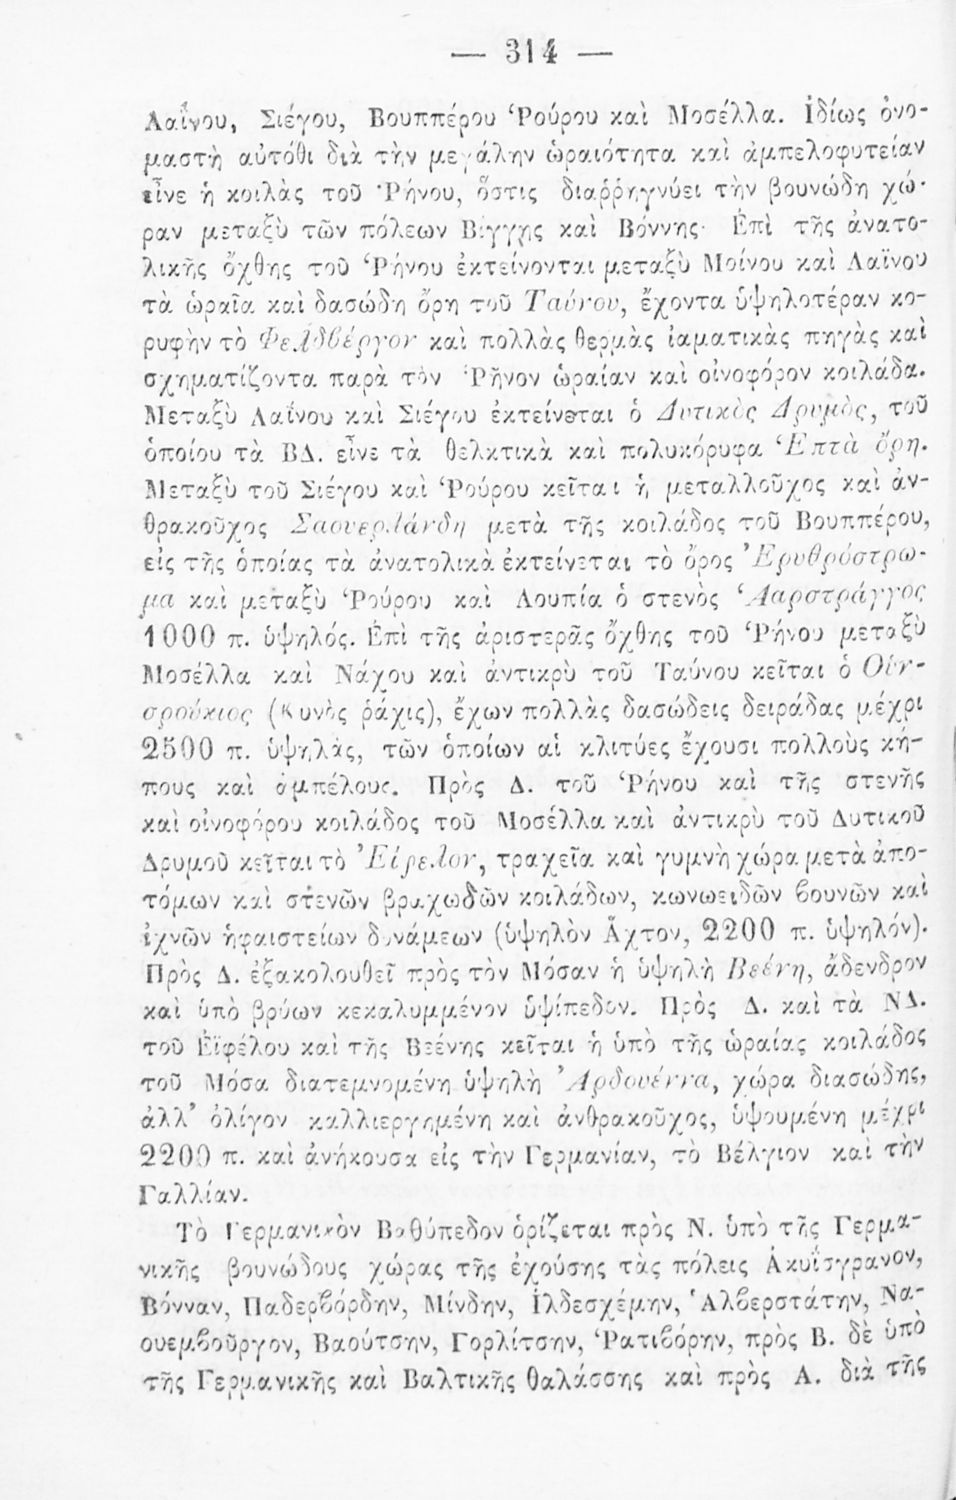 — 314 —
Λαΐνου, Σιέγου, Βουππέρου ‘Ρούρου καὶ Μοσέλλα. Ἰδίως ὀνο-
μαστὴ αὐτόθι διὰ τὴν μεγάλην ὡραιότητα καὶ ἀμπελοφυτείαν
εἶνε ἡ κοιλὰς τοῦ ‘Ρήνου, ὅστις διαῤῥηγνύει τὴν βουνώδη χώ-
ραν μεταξὺ τῶν πόλεων Βίγγης καὶ Βόννης· Ἐπὶ τῆς ἀνατο-
λικῆς ὄχθης τοῦ ‘Ρήνου ἐκτείνονται μεταξὺ Μοίνου καὶ Λαΐνου
τὰ ὡραῖα καὶ δασώδη ὄρη τοῦ Ταύνου, ἔχοντα ὑψηλοτέραν κο-
ρυφὴν τὸ Φελδβέργον καὶ πολλὰς θερμὰς ἰαματικὰς πηγὰς καὶ
σχηματίζοντα παρὰ τὸν ‘Ρῆνον ὡραίαν καὶ οἰνοφόρον κοιλάδα.
Μεταξὺ Λαΐνου καὶ Σιέγου ἐκτείνεται ὁ Δυτικὸς Δρυμὸς, τοῦ
ὁποίου τὰ ΒΔ. εἶνε τὰ θελκτικὰ καὶ πολυκόρυφα ‘Επτὰ ὄρη.
Μεταξὺ τοῦ Σιέγου καὶ ‘Ρούρου κεῖται ἡ μεταλλοῦχος καὶ ἀν-
θρακοῦχος Σαουερλάνδη μετὰ τῆς κοιλάδος τοῦ Βουππέρου,
εἰς τῆς ὁποίας τὰ ἀνατολικὰ ἐκτείνεται τὸ ὄρος ’Ερυθρόστρω-
μα καὶ μεταξὺ ‘Ρούρου καὶ Λουπία ὁ στενὸς ‘Ααρστράγγος
1000 π. ὑψηλός. Ἐπὶ τῆς ἀριστερᾶς ὄχθης τοῦ ‘Ρήνου μεταξὺ
Μοσέλλα καὶ Νάχου καὶ ἀντικρὺ τοῦ Ταύνου κεῖται ὁ Οὑν-
σρούκιος (Κυνὸς ῥάχις), ἔχων πολλὰς δασώδεις δειράδας μέχρι
2500 π. ὑψηλὰς, τῶν ὁποίων αἱ κλιτύες ἔχουσι πολλοὺς κή-
πους καὶ ἀμπέλους. Πρὸς Δ. τοῦ ‘Ρήνου καὶ τῆς στενῆς
καὶ οἰνοφόρου κοιλάδος τοῦ Μοσέλλα καὶ ἀντικρὺ τοῦ Δυτικοῦ
Δρυμοῦ κεῖται τὸ ’Είφελον, τραχεῖα καὶ γυμνὴ χώρα μετὰ ἀπο-
τόμων καὶ στενῶν βραχωδῶν κοιλάδων, κωνωειδῶν βουνῶν καὶ
ἰχνῶν ἡφαιστείων δυνάμεων (ὑψηλὸν Ἄχτον, 2200 π. ὑψηλόν).
Πρὸς Δ. ἐξακολουθεῖ πρὸς τὸν Μόσαν ἡ ὑψηλὴ Βεένη, ἄδενδρον
καὶ ὑπὸ βρύων κεκαλυμμένον ὑψίπεδον. Πρὸς Δ. καὶ τὰ ΝΔ.
τοῦ Ἐϊφέλου καὶ τῆς Βεένης κεῖται ἡ ὑπὸ τῆς ὡραίας κοιλάδος
τοῦ Μόσα διατεμνομένη ὑψηλὴ ’Αρδουέννα, χώρα διασώδης,
ἀλλ’ ὀλίγον καλλιεργημένη καὶ ἀνθρακοῦχος, ὑψουμένη μέχρι
2200 π. καὶ ἀνήκουσα εἰς τὴν Γερμανίαν, τὸ Βέλγιον καὶ τὴν
Γαλλίαν.
Τὸ Γερμανικὸν Βαθύπεδον ὁρίζεται πρὸς Ν. ὑπὸ τῆς Γερμα-
νικῆς βουνώδους χώρας τῆς ἐχούσης τὰς πόλεις Ἀκυΐσγρανον,
Βόνναν, Παδερβόρδην, Μίνδην, Ἱλδεσχέμην, ‘Αλβερστάτην, Να-
ουεμβοῦργον, Βαούτσην, Γορλίτσην, ‘Ρατιβόρην, πρὸς Β. δὲ ὑπὸ
τῆς Γερμανικῆς καὶ Βαλτικῆς θαλάσσης καὶ πρὸς Α. διὰ τῆς